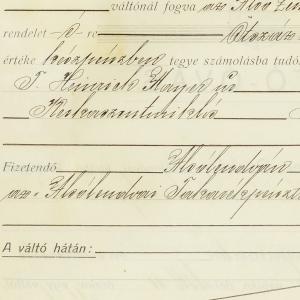 váltónál fogva az Alsó Len
rendelet -o- re Ötszáz
értéke készpénzben tegye számolásba tudó
T. Heinrich Mayer úr
Kerkaszentmiklós
Fizetendő Alsólendván
az Alsólendvai Takarékpénzt
A váltó hátán: